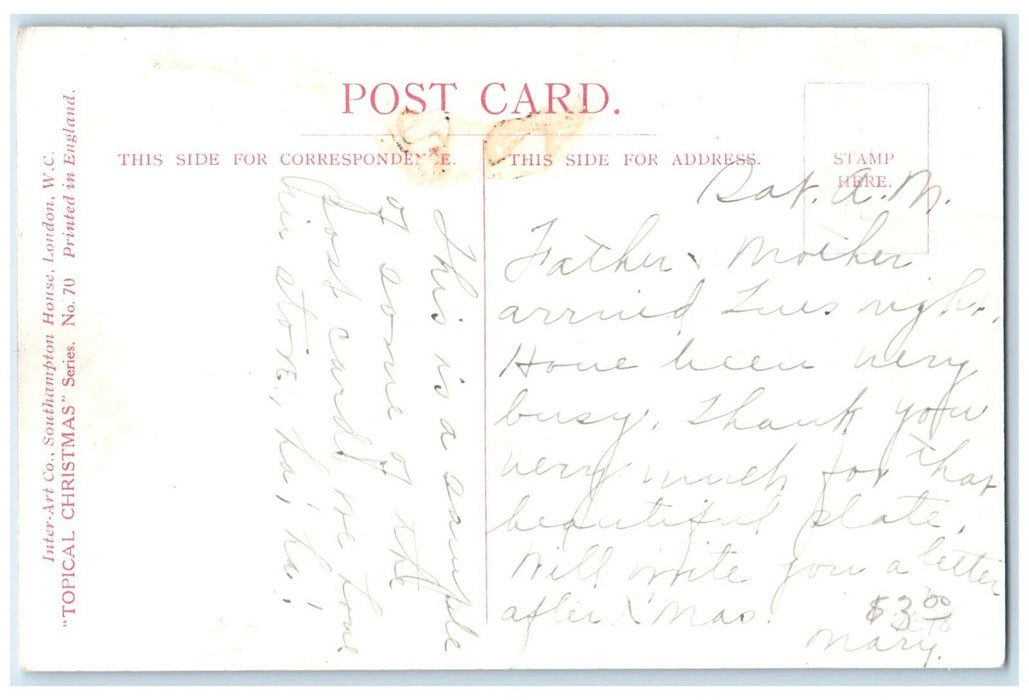 POST CARD.
THIS SIDE FOR CORRESPONDENCE.
THIS SIDE FOR ADDRESS.
STAMP
HERE.
Inter-Art Co., Southampton House, London, W.C.
"TOPICAL CHRISTMAS" Series. No. 70 Printed in England.
This is a sample
of some of the
post cards we have
in store, ha, ha!
Sat. A.M.
Father & Mother
arrived Tues night.
Have been very
busy. Thank you
very much for that
beautiful plate.
Will write you a letter
after X'Mas.
$3.00
Mary.